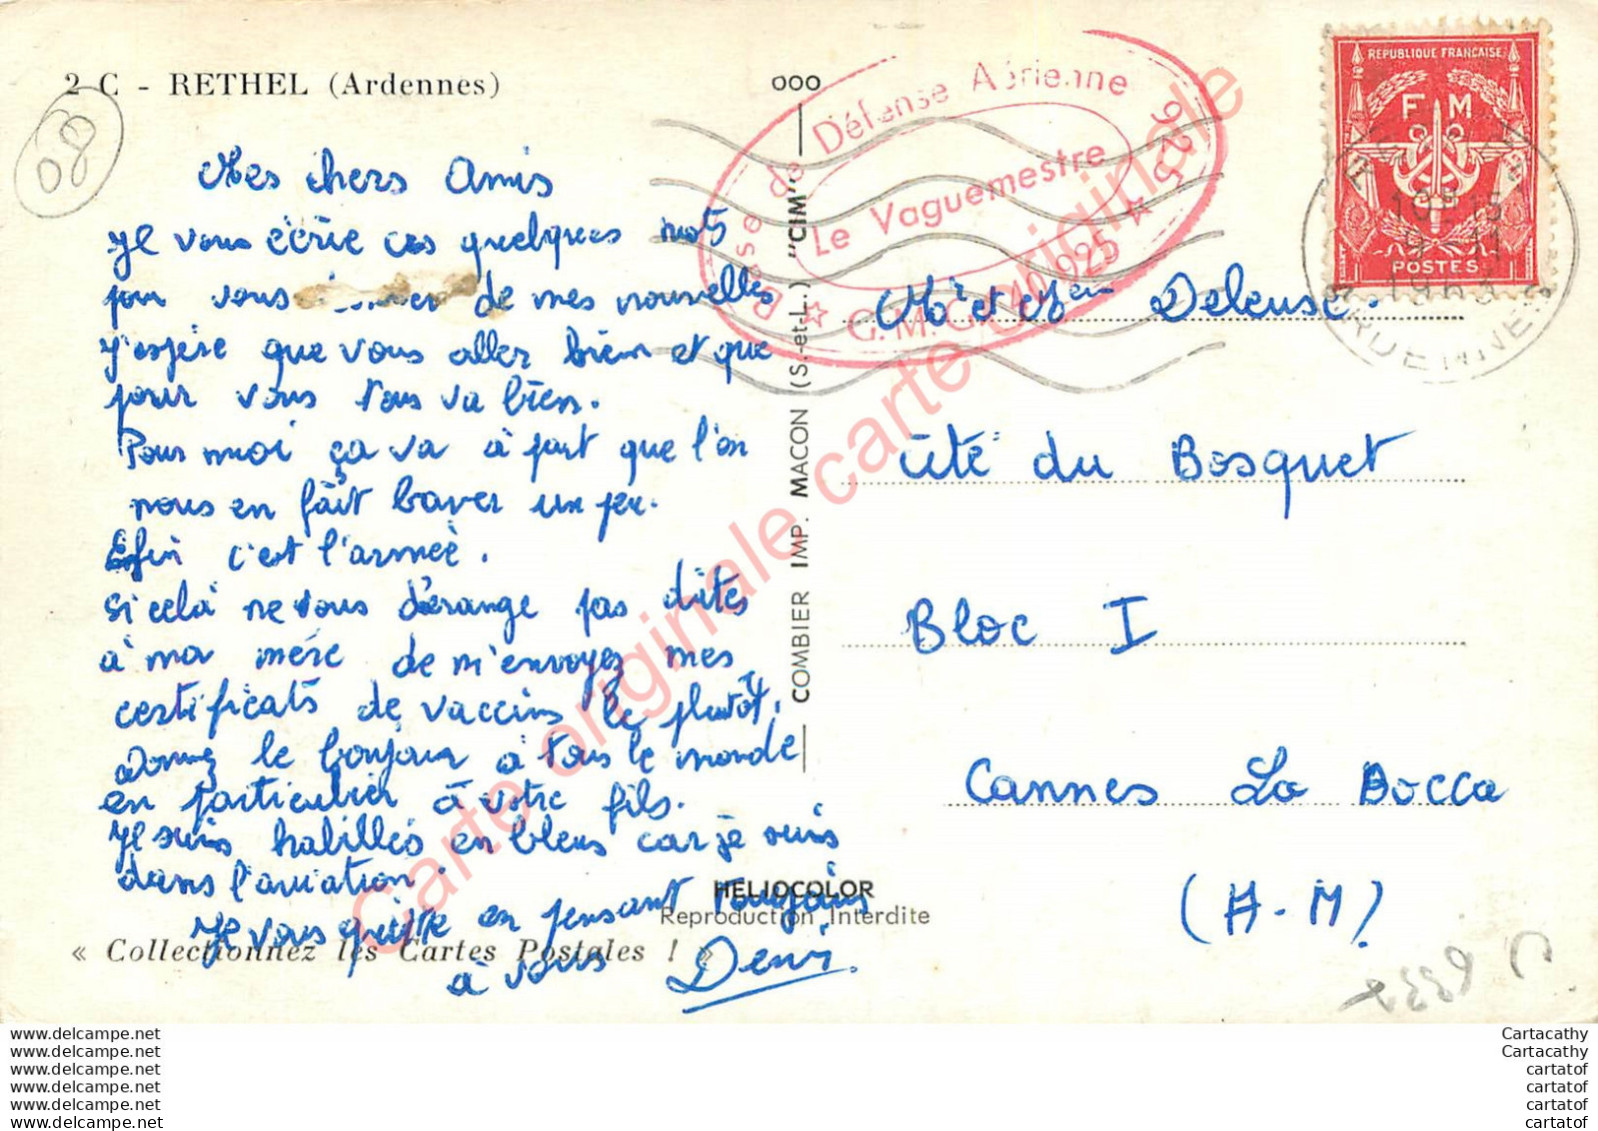 2 C - RETHEL (Ardennes)
08
Mes chers Amis
Je vous écrie ces quelques mots
pour vous donner de mes nouvelles
J'espère que vous aller bien et que
pour vous tous va bien.
Pour moi ça va à part que l'on
nous en fâit baver un peu.
Enfin c'est l'armée.
Si celà ne vous dérange pas dites
à ma mère de m'envoyez mes
certificats de vaccins le plutôt.
Donnez le bonjour à tous le monde
en particulier à votre fils.
Je suis habillés en bleus car je suis
dans l'aviation.
Je vous quitte en pensant toujours
à vous Denis.
« Collectionnez les Cartes Postales ! »
COMBIER IMP. MACON (S.-et-L.) "CIM"
HELIOCOLOR
Reproduction Interdite
Base de Défense Aérienne 925
Le Vaguemestre
G.M.G. 40.925
RÉPUBLIQUE FRANÇAISE
F M
POSTES
10H15
9-11
1963
ARDENNES
Mr et Mem Deleuse.
cité du Bosquet
Bloc I
Cannes La Bocca
(A-M)
Carte originale carte originale
www.delcampe.net
www.delcampe.net
www.delcampe.net
www.delcampe.net
www.delcampe.net
www.delcampe.net
Cartacathy
Cartacathy
cartatof
cartatof
cartatof
cartatof